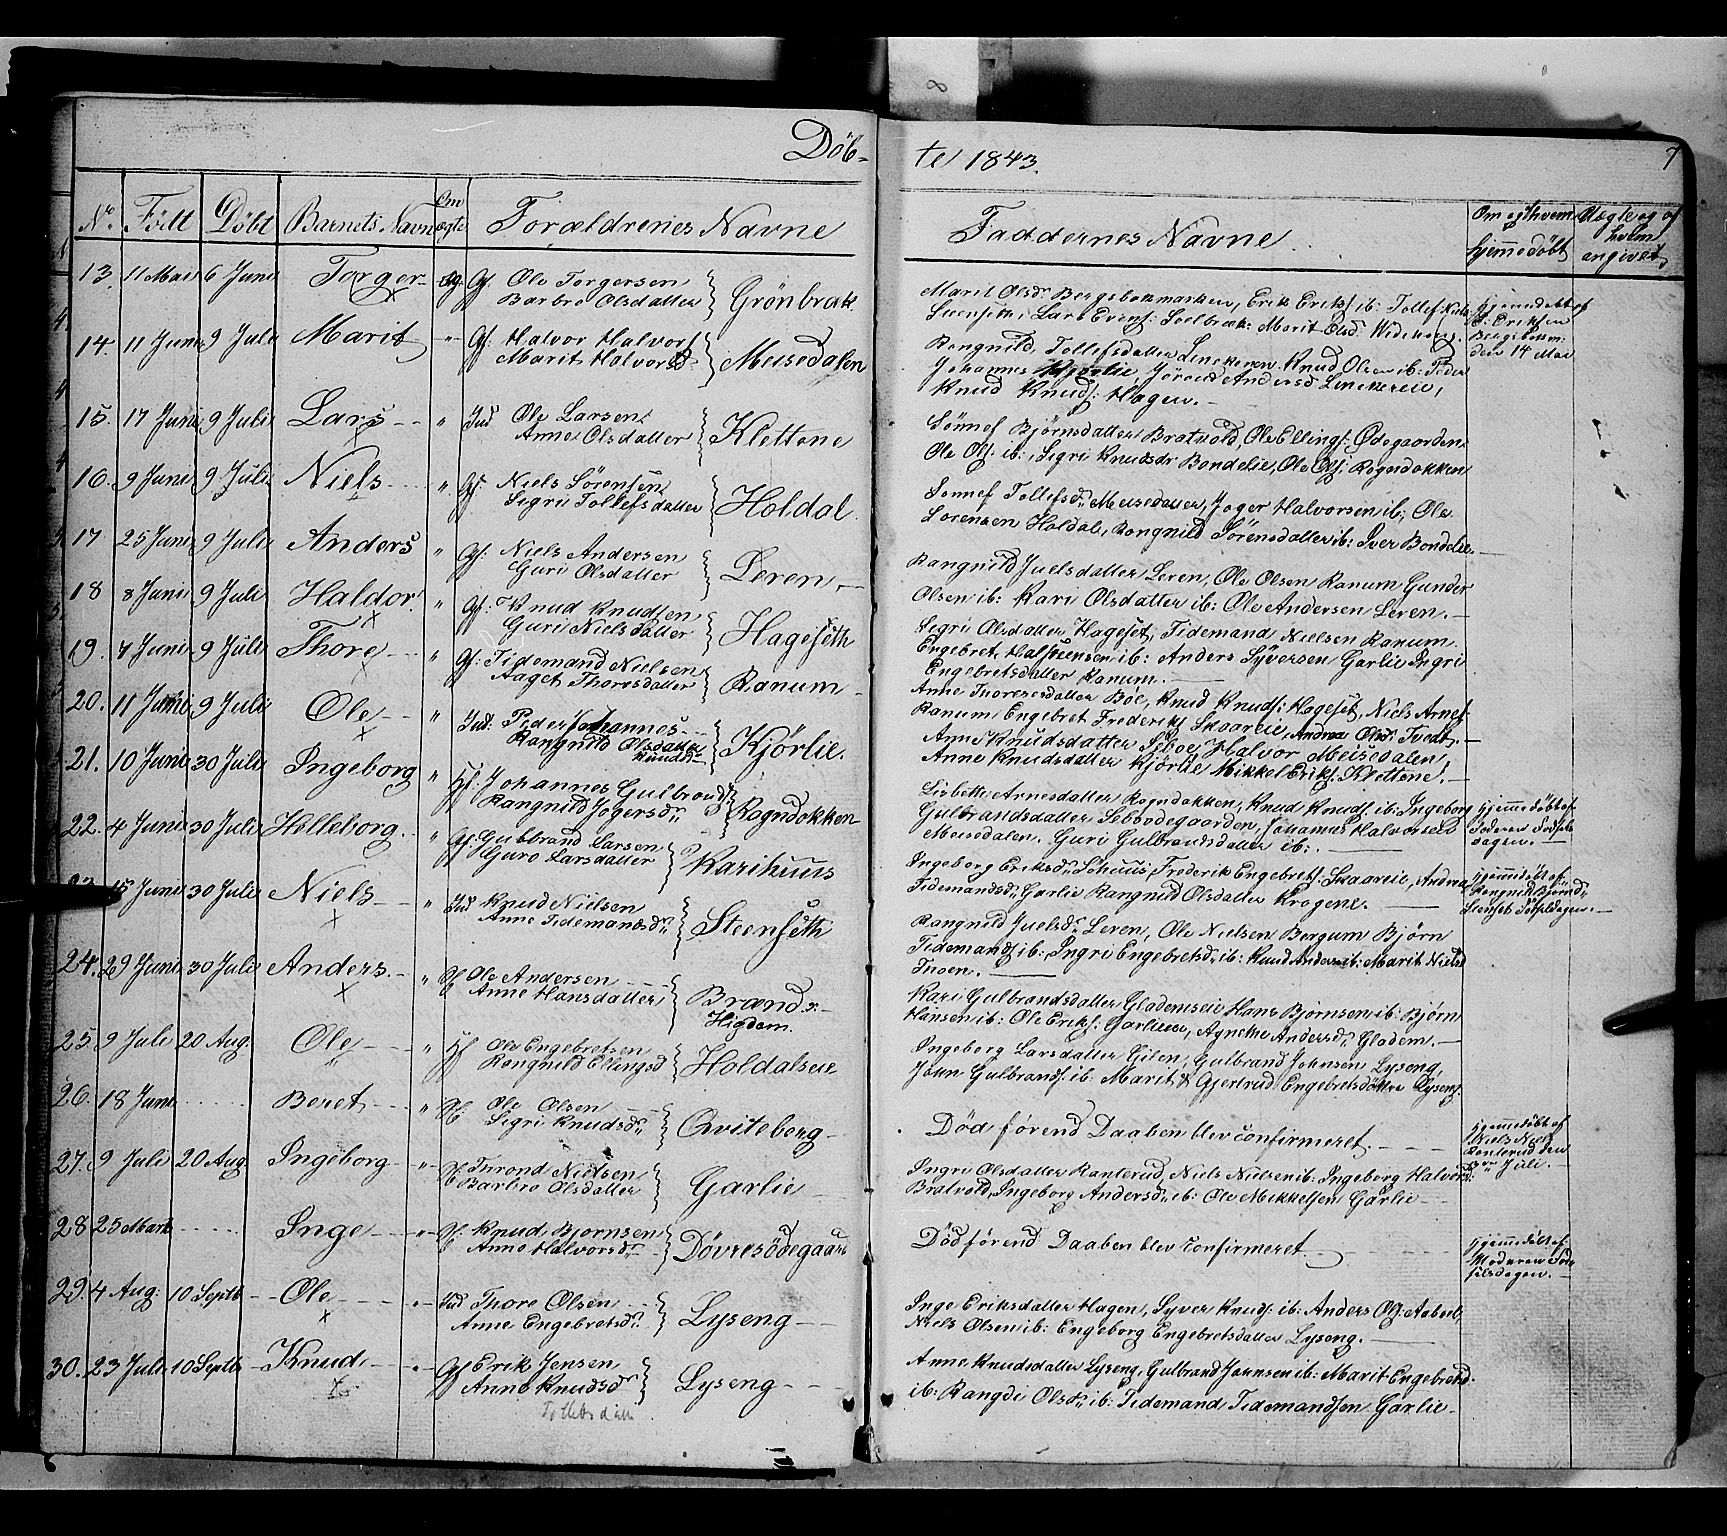 Döb-
te 1843.
7
8
No. Födt Döbt Barnets Navn Om ægte Forældrenes Navne
Faddernes Navne
Om og af hvem hjemmedöbt
Uægte og af hvem angivet
13. 11 Mai 6 Juni Torger Æg. Gf. Ole Torgersen
Barbro Olsdatter Grönbræk
Marit Olsdr Bergsbakmarken, Erik Eriks: ib:
Lars Evens:
Marit Olsd
Hjemmedöbt af
Eriksen
den 14 Mai
14. 11 Juni 9 Juli Marit " Gf: Halvor Halvors
Marit Halvorsd Meisedalen
Rangnild Tollefsdatter Knud Olsen ib: Peder
Johannes Kjörlie Jörand Andersd
Knud Knuds: Hagen.
15. 17 Juni 9 Juli Lars " Ind Ole Larsen
Anne Olsdatter Klettene
Sönnef Björnsdatter Bratvold, Ole Ellings: Ödegaarden
Ole Ols: ib: Sigri Knudsdr Bondelie, Ole Ols: Rogndokken
16. 9 Juni 9 Juli Niels " Gf: Niels Sörensen
Sigri Tollefsdatter Holdal
Sönnef Tollefsdr Meisedalen, Joger Halvorsen ib: Ole
Sorensen Holdal, Rangnild Sörensdatter ib: Iver Bondelie
17 25 Juni 9 Juli Anders " Gf: Niels Andersen
Guri Olsdatter Leren
Rangnild Juelsdatter Leren, Ole Olsen Ranum Gunder
Olsen ib: Kari Olsdatter ib: Ole Andersen Leren.
18 8 Juni 9 Juli Haldor " Gf: Knud Knudsen
Guri Nielsdatter Hageseth
Segri Olsdatter Hageset, Tidemand Nielsen Ranum
Engebret Halsteensen ib: Anders Syversen Garlie Ingri
Engebretsdatter Ranum.
19. 4 Juni 9 Juli Thore " Gf: Tidemand Nielsen
Aaget Thoresdatter Ranum
Anne Thoresdatter Böe, Knud Knuds: Hageset, Niels Arnes:
Ranum Engebret Frederiks Skaarlie, Andrea Olsd: Tvedt.
20. 11 Juni 9 Juli Ole " Ind: Peder Johannes
Rangnild Olsdatter
Knuds Kjörlie.
Anne Knudsdatter Seboe, Halvor Meisedalen
Anne Knudsdatter Kjörlie Mikkel Eriks: Klettene.
21. 10 Juni 30 Juli Ingeborg " Hf. Johannes Gulbrands
Rangnild Jogersdr Rogndokken
Lisbeth Arnesdatter Rogndokken, Knud Knuds ib: Ingeborg
Gulbrandsdatter Sebödegaarden, Johannes Halvorsen
Meisedalen, Guri Gulbrandsdatter ib:.
Hjemmedöbt af
Födsels
dagen.
22. 4 Juni 30 Juli Hilleborg " Gf: Gulbrand Larsen
Guro Larsdatter Karihuus
Ingeborg Eriksdr Frederik Engebrets: Skaarlie, Andrea
Tidemandsdr Garlie Rangnild Olsdatter Krogene.
Hjemmedöbt af
Rangnild Björnsdr
Stenset
23. 15 Juni 30 Juli Niels " Ind Knud Nielsen
Anne Tidemandsdr Steenseth
Rangnild Juelsdr Leren, Ole Nielsen Bergum Björn
Tidemands ib: Ingri Engebretsdr ib: Knud Anders ib: Marit Nielsd
24. 29 Juni 30 Juli Anders. " Gf Ole Andersen
Anne Hansdatter Brænd
Higdem.
Kari Gulbrandsdatter Glademseie Hans Björnsen ib: Björn
Hansen ib: Ole Eriks: Garlieeie, Agnethe Andersdr Gladem.
25. 9 Juli 20 Aug. Ole " Hf Ole Engebretsen
Rangnild Ellingsd Holdalseie
Ingeborg Larsdatter Gilen, Gulbrand Johnsen Lyseng,
John Gulbrands: ib. Marit & Gjertrud Engebretsdöttre Lyseng.
26. 18 Juni Beret " Gf: Ole Olsen
Sigri Knudsdr Qviteberg
Död förend Daaben blev confirmeret.
Hjemmedöbt af
Niels Niels
Ranterud den
Juli.
27. 9 Juli 20 Aug. Ingeborg " Gf Trond Nielsen
Barbro Olsdatter Garlie
Ingri Olsdatter Ranterud, Niels Nielsen ib: Ingeborg Halvorsd:
Bratvold, Ingeborg Andersdr ib: Ole Mikkelsen Garlie
28 25 Marts Inge " Gf: Knud Bjornsen
Anne Halvorsdr Dövresödegaard
Död förend Daaben blev confirmeret.
Hjemmedöbt af
Moderen Föd-
selsdagen.
29. 4 Aug: 10 Septb Ole " Ind Thore Olsen
Anne Engebretsdr Lyseng
Inge Eriksdatter Hagen, Syver Knuds: ib: Anders Ols: Aaböle
Niels Olsen ib: Engeborg Engebretsdatter Lyseng.
30. 23 Juli 10 Septb Knud " Gf Erik Jensen
Anne Knudsd Lyseng
Tollefsdatter
Anne Knudsdatter Lyseng, Gulbrand Johnsen ib: Marit Engebretsd
ib: Rangdi Olsdr ib: Tidemand Tidemandsen Garlie